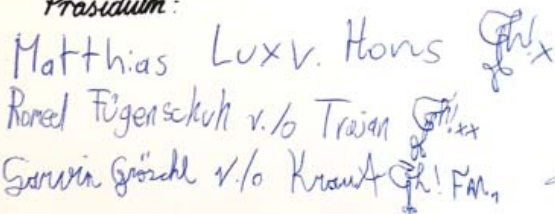 Präsidium:
Matthias Lux v. Hons x
Romed Fügenschuh v./o Trajan xx
Gröschl v./o Kraut FM,